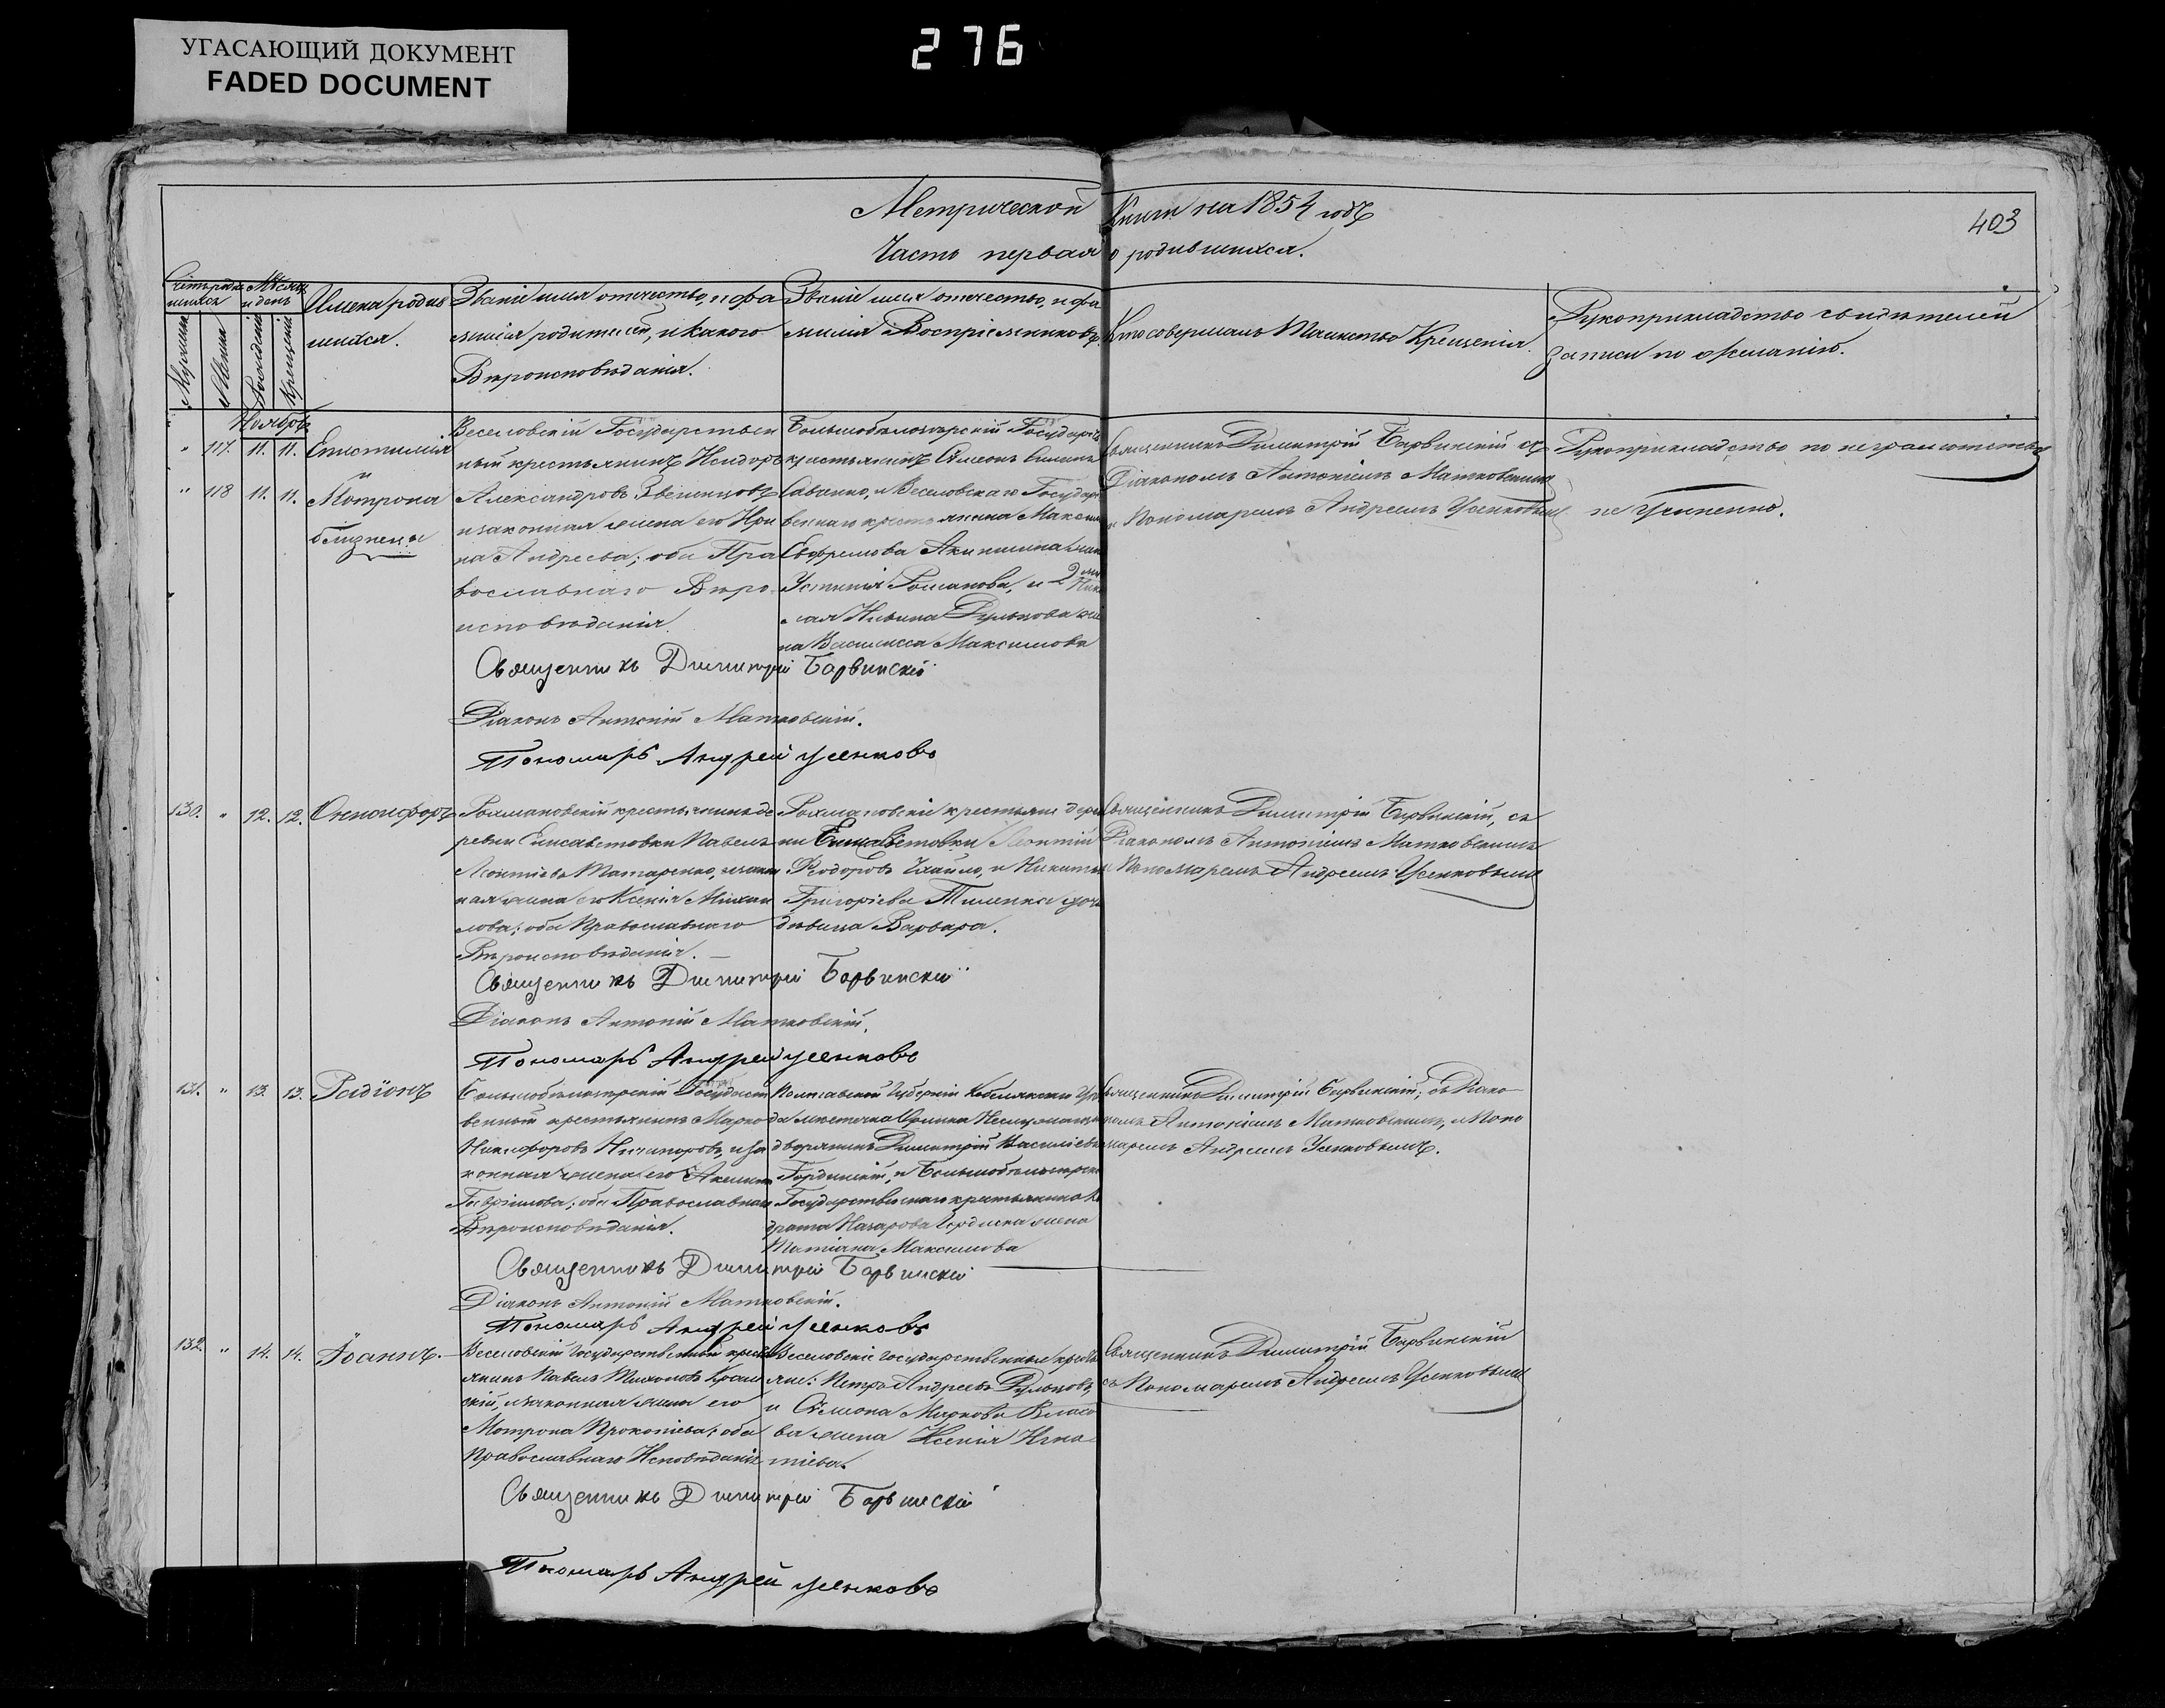 УГАСАЮЩИЙ ДОКУМЕНТ
FADED DOCUMENT
276
Метрической Книги на 1854 годъ
403
Часть первая о родившихся.
Счетъ родившихся
Мѣсяцъ и день
Мужеска
Женска
Рожденія
Крещенія
Имена родив
шихся.
Званіе имя отчество, и фа
милія родителей, и какого
Вѣроисповѣданія.
Званіе имя отчество, и фа
милія Воспріемниковъ.
Кто совершалъ Таинство Крещенія.
Рукоприкладство свидѣтелей
записи по желанію.
Ноябрь
" 117. 11. 11.
Епистимія
и
" 118 11. 11.
Мотрона
близнецы
Веселовскій Государствен
ный крестьянинъ Исидоръ
Александровъ Звенинцовъ
и законная жена его Ири
на Андреева; оба Пра
вославнаго Вѣро
исповѣданія.
Большобѣлозерскій Государств
крестьянинъ Сѵмеонъ
Савенко, и Веселовскаго Государ
веннаго крестьянина Максим
Ефремова Акименка жена
Устинія Романова, и 2й Нико
лая Ильина Рульцова же
на Василисса Максимова
Священникъ Димитрій Барвинскій съ
Діакономъ Антоніемъ Матковскимъ
и Пономаремъ Андреемъ Усенковымъ
Рукоприкладство по неграмотству
не учинено.
Священникъ Димитрій Барвинскій
Діаконъ Антоній Матковскій.
Пономарь Андрей Усенковъ
130. " 12. 12.
Онисифоръ
Рохмановскій крестьянинъ де
ревни Елисаветовки Павелъ
Леонтіевъ Татаренко, и закон
ная жена его Ксенія Михаи
лова; оба Православнаго
Вѣроисповѣданія.
Рохмановскіе крестьяне дерев
ни Елисаветовки Леонтій
Ѳеодоровъ, и Никиты
Григоріева дочь
дѣвица Варвара.
Священникъ Димитрій Барвинскій, съ
Діакономъ Антоніемъ Матковскимъ
и Пономаремъ Андреемъ Усенковымъ
Священникъ Димитрій Барвинскій
Діаконъ Антоній Матковскій.
Пономарь Андрей Усенковъ
131. " 13. 13.
Радіонъ
Большобѣлозерскій Государст
венный крестьянинъ Марко
Никифоровъ Ничипоровъ, и за
конная жена его Акилина
Гавріилова; оба Православнаго
Вѣроисповѣданія.
Полтавской Губерніи Кобелякскаго Уѣз
да мѣстечка
дворянинъ Димитрій Василіевъ
Гординскій, и Большобѣлозерска
Государственнаго крестьянина Ко
драта Назарова жена
Татіяна Максимова
Священникъ Димитрій Барвинскій; съ Діако
номъ Антоніемъ Матковскимъ, и Поно
маремъ Андреемъ Усенковымъ.
Священникъ Димитрій Барвинскій
Діаконъ Антоній Матковскій.
Пономарь Андрей Усенковъ
132. " 14. 14.
Іоаннъ.
Веселовскій государственный крест
янинъ Павелъ Тихоновъ
скій, и законная жена его
Мотрона Прокопіева; оба
Православнаго Исповѣданія
Веселовскіе государственные кресть
яне: Петръ Андреевъ Рульцовъ,
и Сѵмеона Маркова Власо
ва жена Ксенія Игна
тіева.
Священникъ Димитрій Барвинскій
съ Пономаремъ Андреемъ Усенковымъ
Священникъ Димитрій Барвинскій
Пономарь Андрей Усенковъ